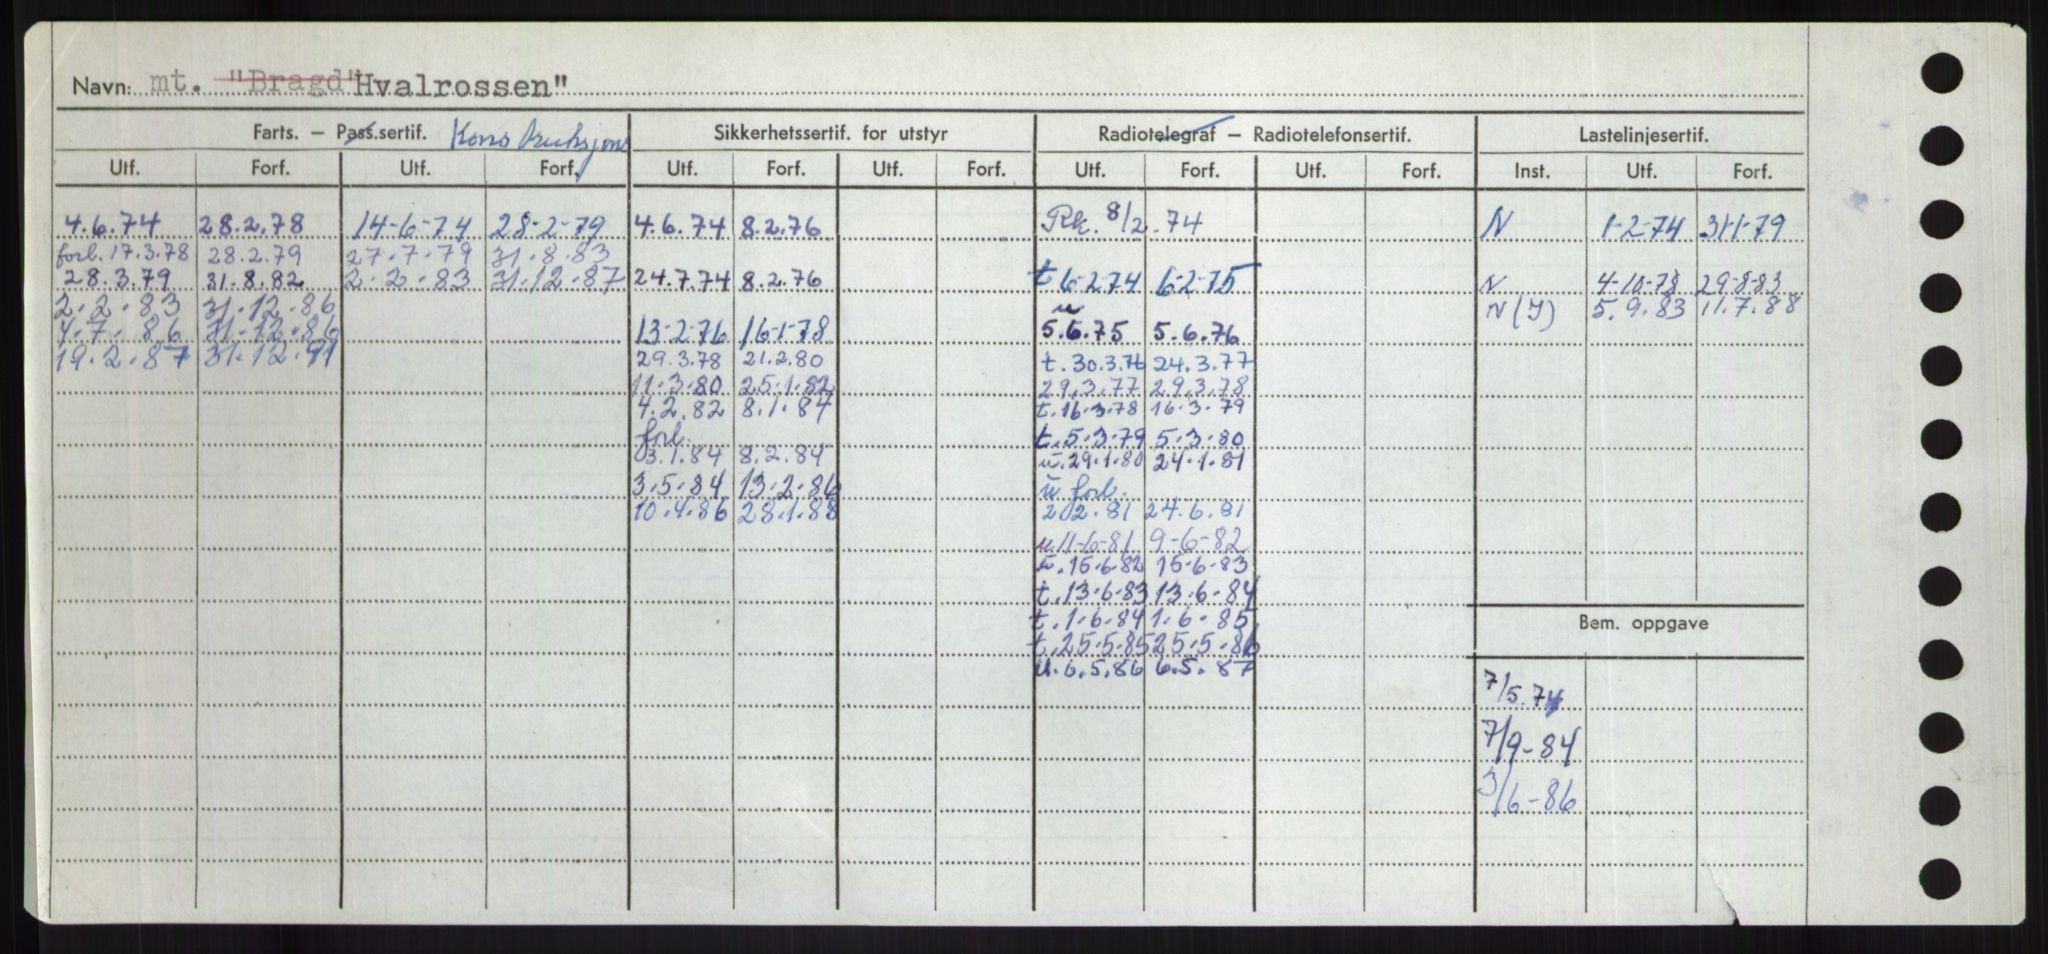 Navn: mt. "Bragd" Hvalrossen"
Farts. – Pass.sertif. Konstruksjons Sikkerhetssertif. for utstyr Radiotelegraf – Radiotelefonsertif. Lastelinjesertif.
Utf. Forf. Utf. Forf. Utf. Forf. Utf. Forf. Utf. Forf. Utf. Forf. Inst. Utf. Forf.
4.6.74 28.2.78 14-6-74 28-2-79 4.6.74 8.2.76 Rk. 8/2.74 N 1-2-74 31-1-79
forl. 17.3.78 28.2.79 27.7.79 31.8.83
28.3.79 31.8.82 2.2.83 31.12.87 24.7.74 8.2.76 t 6-2-74 6-2-75 N 4-10-78 29-8-83
2.2.83 31.12.86 u N (I) 5.9.83 11.7.88
4.7.86 31.12.86 13-2-76 16-1-78 5.6.75 5.6.76
19.2.87 31.12.91 29.3.78 21.2.80 t. 30.3.76 24.3.77
11.3.80 25.1.82 29.3.77 29.3.78
4.2.82 8.1.84 t. 16.3.78 16.3.79
forl. t. 5.3.79 5.3.80
3.1.84 8.2.84 u. 29.1.80 24.1.81
3.5.84 13.2.86 u forl.
10.4.86 28.1.88 2.2.81 24.6.81
u. 11-6-81 9-6-82
u. 15.6.82 15-6-83
t. 13.6.83 13.6.84
t. 1.6.84 1.6.85
Bem. oppgave
t. 25.5.85 25.5.86
u. 6.5.86 6.5.87
7/5.74
7/9-84
3/6-86